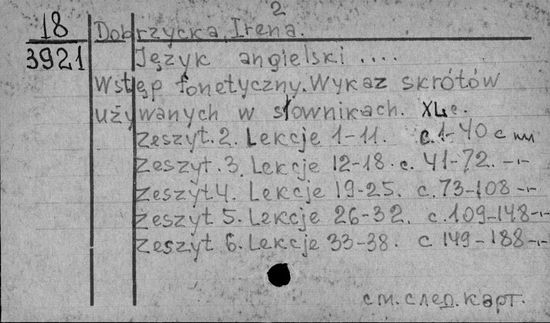 2
18 Dobrzycka, Irena.
3921 Język angielski ....
Wstęp fonetyczny. Wykaz skrótów
używanych w słownikach. XL c.
Zeszyt. 2. Lekcje 1-11. c. 1-40 с ил
Zeszyt. 3. Lekcje 12-18. c. 41-72. -"-
Zeszyt 4. Lekcje 19-25. c. 73-108 -"-
Zeszyt 5. Lekcje 26-32. c. 109-148 -"-
Zeszyt 6. Lekcje 33-38. c 149-188 -"-
см. след. карт.